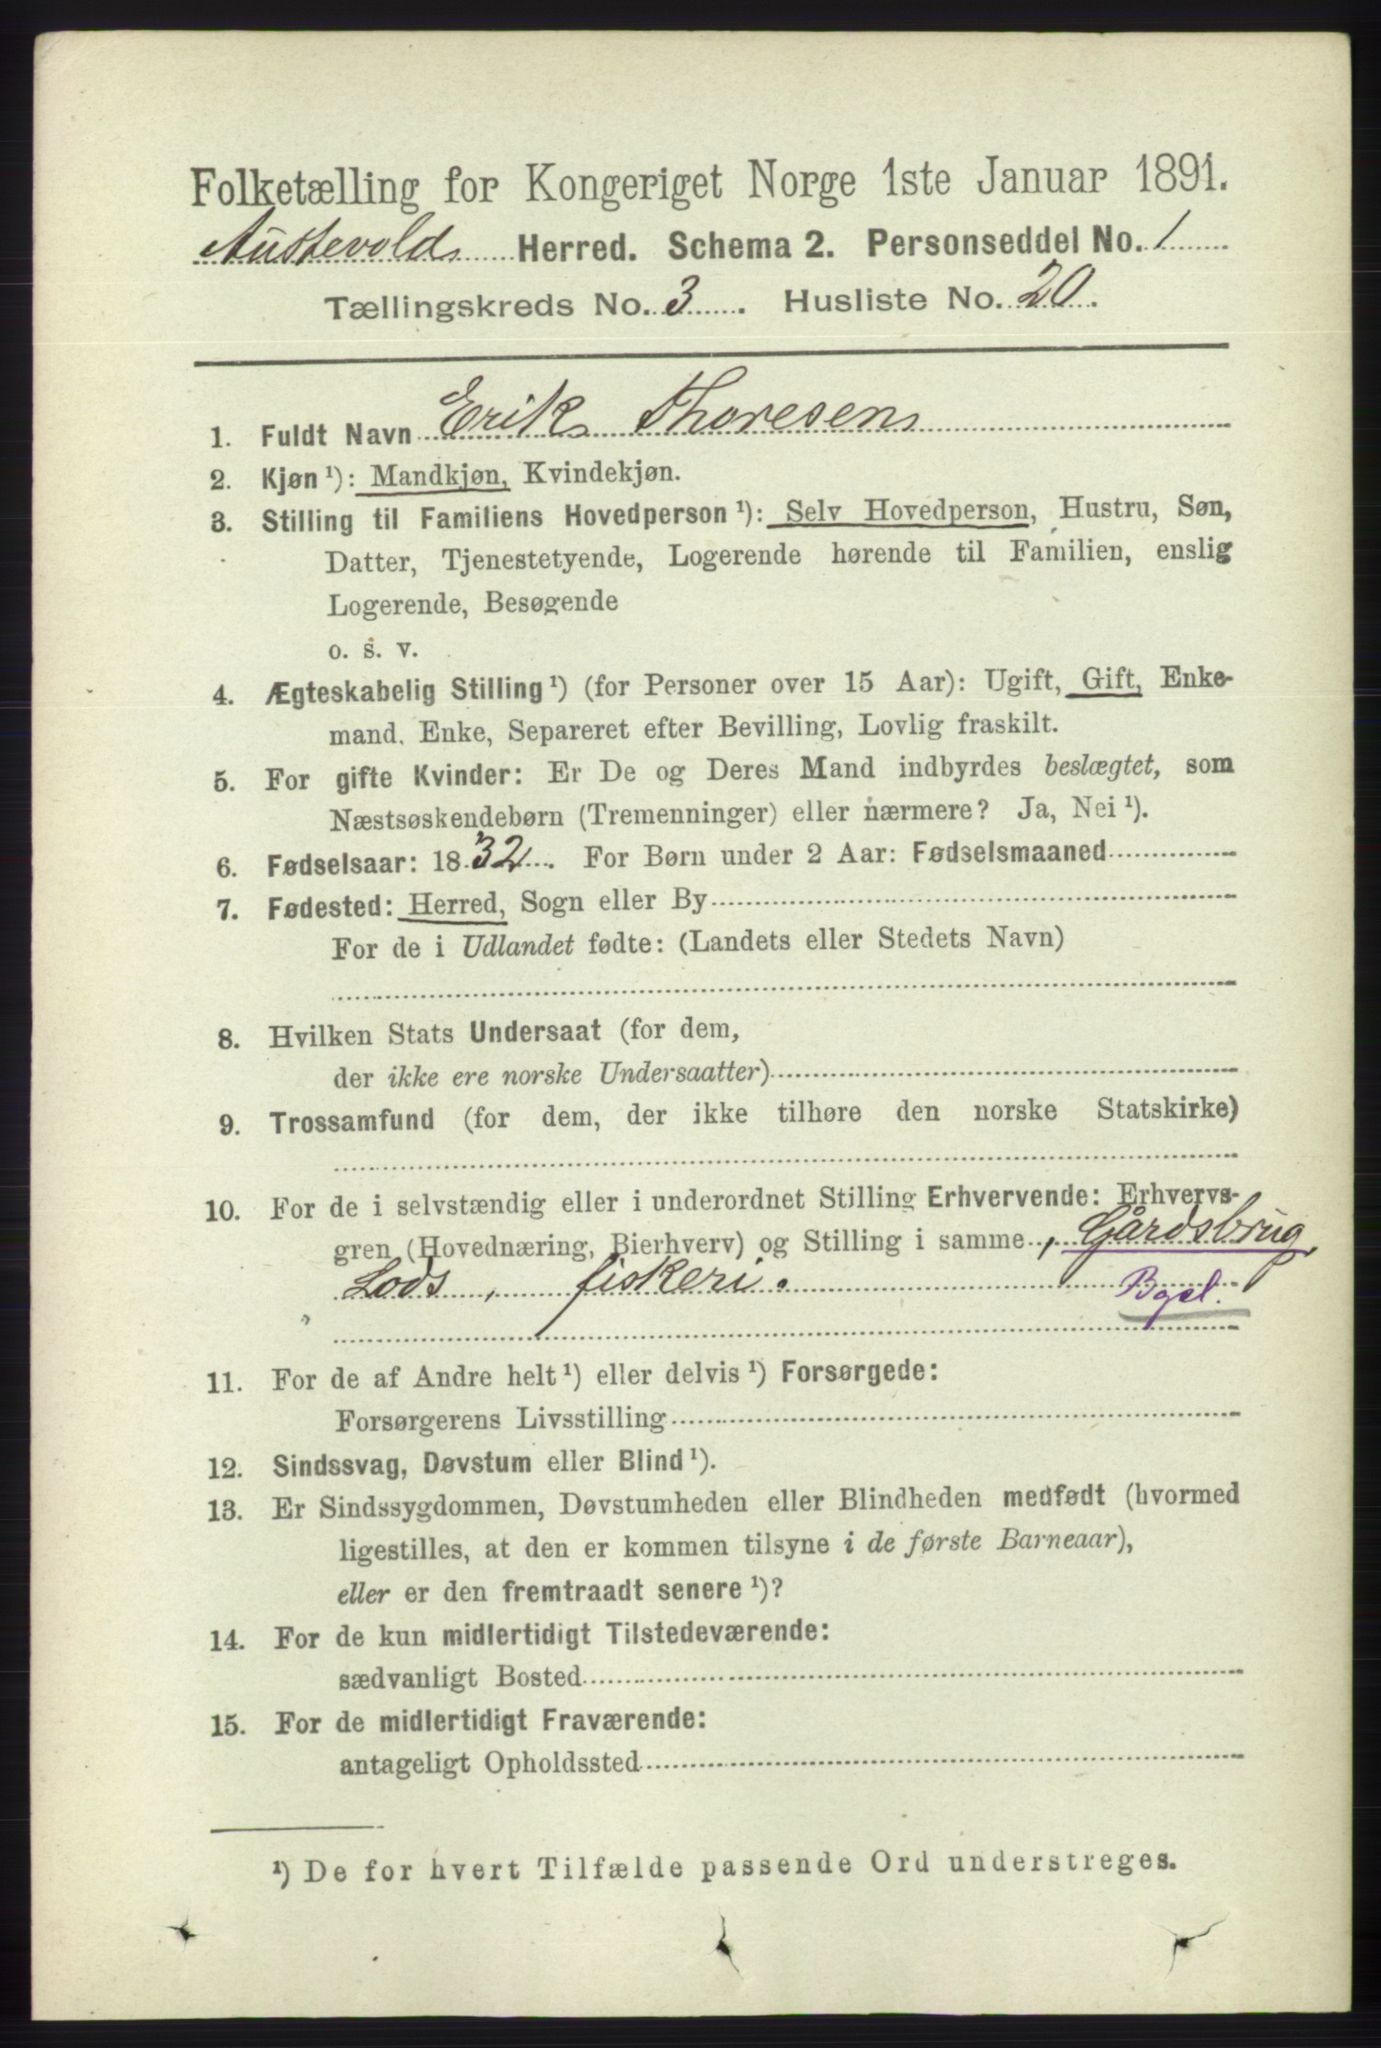 Folketælling for Kongeriget Norge 1ste Januar 1891.
Austevold Herred. Schema 2. Personseddel No. 1
Tællingskreds No. 3. Husliste No. 20.
1. Fuldt Navn Erik Thoresen
2. Kjøn ¹): Mandkjøn, Kvindekjøn.
3. Stilling til Familiens Hovedperson ¹): Selv Hovedperson, Hustru, Søn,
Datter, Tjenestetyende, Logerende hørende til Familien, enslig
Logerende, Besøgende
o. s. v.
4. Ægteskabelig Stilling ¹) (for Personer over 15 Aar): Ugift, Gift, Enke-
mand, Enke, Separeret efter Bevilling, Lovlig fraskilt.
5. For gifte Kvinder: Er De og Deres Mand indbyrdes beslægtet, som
Næstsøskendebørn (Tremenninger) eller nærmere? Ja, Nei ¹).
6. Fødselsaar: 1832. For Børn under 2 Aar: Fødselsmaaned
7. Fødested: Herred, Sogn eller By
For de i Udlandet fødte: (Landets eller Stedets Navn)
8. Hvilken Stats Undersaat (for dem,
der ikke ere norske Undersaatter)
9. Trossamfund (for dem, der ikke tilhøre den norske Statskirke)
10. For de i selvstændig eller i underordnet Stilling Erhvervende: Erhvervs-
gren (Hovednæring, Bierhverv) og Stilling i samme, Gårdsbrug,
Lods, fiskeri.
11. For de af Andre helt ¹) eller delvis ¹) Forsørgede:
Forsørgerens Livsstilling
12. Sindssvag, Døvstum eller Blind ¹).
13. Er Sindssygdommen, Døvstumheden eller Blindheden medfødt (hvormed
ligestilles, at den er kommen tilsyne i de første Barneaar),
eller er den fremtraadt senere ¹)?
14. For de kun midlertidigt Tilstedeværende:
sædvanligt Bosted
15. For de midlertidigt Fraværende:
antageligt Opholdssted
¹) De for hvert Tilfælde passende Ord understreges.